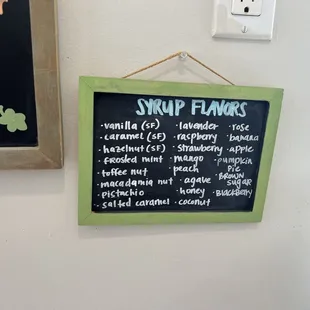 SYRUP FLAVORS
·vanilla (SF)
·caramel (SF)
·hazelnut (SF)
·frosted mint
·toffee nut
·macadamia nut
·pistachio
·salted caramel
·lavender
·raspberry
·strawberry
·mango
·peach
·agave
·honey
·coconut
·rose
·banana
·apple
·pumpkin
pie
·BROWN
SUGAR
·BlackBERRY